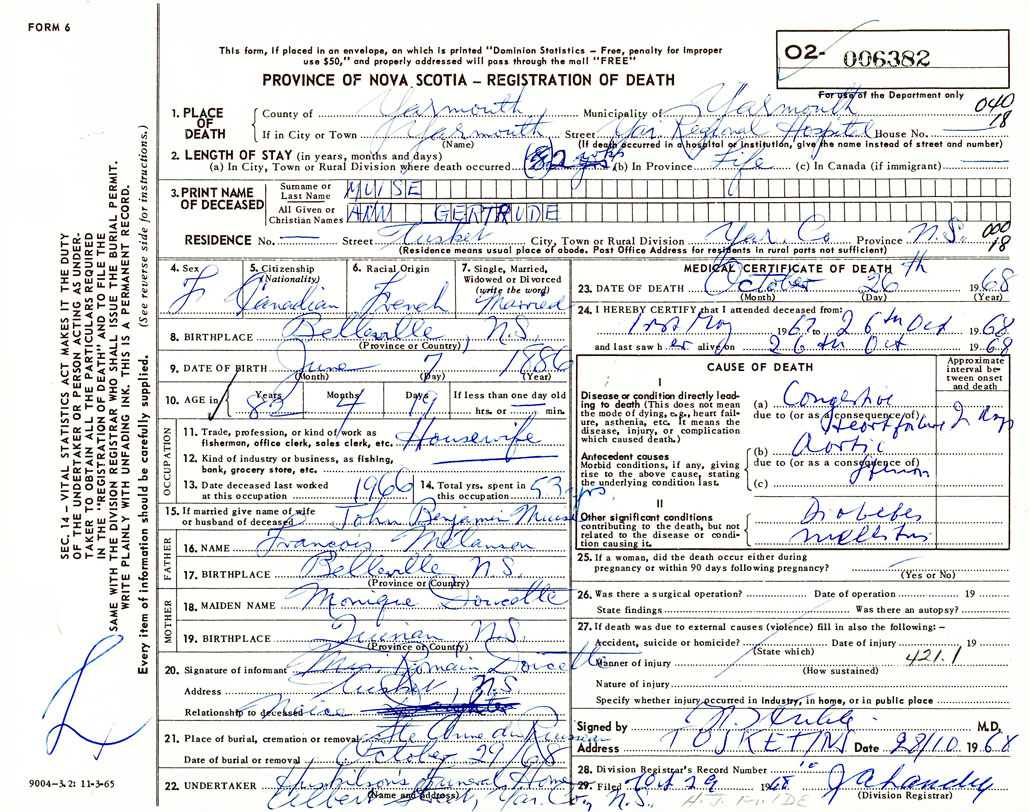 FORM 6
This form, if placed in an envelope, on which is printed "Dominion Statistics — Free, penalty for improper
use $50," and properly addressed will pass through the mail "FREE"
PROVINCE OF NOVA SCOTIA — REGISTRATION OF DEATH
O2- 006382
For use of the Department only
040
18
1. PLACE OF DEATH
County of Yarmouth Municipality of Yarmouth
If in City or Town Yarmouth Street Yar. Regional Hospital House No. —
(Name) (If death occurred in a hospital or institution, give the name instead of street and number)
2. LENGTH OF STAY (in years, months and days)
(a) In City, Town or Rural Division where death occurred 82 yrs (b) In Province Life (c) In Canada (if immigrant) —
3. PRINT NAME OF DECEASED
Surname or Last Name MUISE
All Given or Christian Names ANN GERTRUDE
RESIDENCE No. — Street Tusket City, Town or Rural Division Yar. Co. Province N.S.
000
18
(Residence means usual place of abode. Post Office Address for residents in rural parts not sufficient)
4. Sex F
5. Citizenship (Nationality) Canadian
6. Racial Origin French
7. Single, Married, Widowed or Divorced (write the word) Married
8. BIRTHPLACE Belleville, N.S.
(Province or Country)
9. DATE OF BIRTH June 7 1886
(Month) (Day) (Year)
10. AGE in Years 82 Months 4 Days 19 If less than one day old hrs. or — min.
OCCUPATION
11. Trade, profession, or kind of work as fisherman, office clerk, sales clerk, etc. Housewife
12. Kind of industry or business, as fishing, bank, grocery store, etc.
13. Date deceased last worked at this occupation 1966
14. Total yrs. spent in this occupation 53 yrs.
15. If married give name of wife or husband of deceased John Benjamin Muise
FATHER
16. NAME Francois Melanson
17. BIRTHPLACE Belleville N.S.
(Province or Country)
MOTHER
18. MAIDEN NAME Monique Doucette
19. BIRTHPLACE Quinan N.S.
(Province or Country)
20. Signature of informant Mrs. Romain Doucette
Address Tusket, N.S.
Relationship to deceased Niece daughter
21. Place of burial, cremation or removal Ste Anne du Ruisseau
Date of burial or removal October 29/68
22. UNDERTAKER Funeral Home
(Name and address) Yar. Co., N.S.
MEDICAL CERTIFICATE OF DEATH
23. DATE OF DEATH October 26th 1968
(Month) (Day) (Year)
24. I HEREBY CERTIFY that I attended deceased from:
1rst May 1967 to 26th Oct 1968
and last saw her alive on 26th Oct 1968
CAUSE OF DEATH
Approximate interval between onset and death
I
Disease or condition directly leading to death (This does not mean the mode of dying, e.g., heart failure, asthenia, etc. It means the disease, injury, or complication which caused death.)
(a) Congestive
due to (or as a consequence of)
Heart failure 2 days
Antecedent causes
Morbid conditions, if any, giving rise to the above cause, stating the underlying condition last.
(b) Aortic
due to (or as a consequence of)
(c)
II
Other significant conditions contributing to the death, but not related to the disease or condition causing it.
Diabetes
mellitus
25. If a woman, did the death occur either during pregnancy or within 90 days following pregnancy?
(Yes or No)
26. Was there a surgical operation? Date of operation 19
State findings Was there an autopsy?
27. If death was due to external causes (violence) fill in also the following: —
Accident, suicide or homicide? Date of injury 19
(State which)
Manner of injury 421.1
(How sustained)
Nature of injury
Specify whether injury occurred in industry, in home, or in public place
Signed by M.D.
Address TUSKET NS Date 28/10 1968
28. Division Registrar's Record Number
29. Filed Oct 29 1968
(Division Registrar)
SEC. 14 — VITAL STATISTICS ACT MAKES IT THE DUTY
OF THE UNDERTAKER OR PERSON ACTING AS UNDER-
TAKER TO OBTAIN ALL THE PARTICULARS REQUIRED
IN THE "REGISTRATION OF DEATH" AND TO FILE THE
SAME WITH THE DIVISION REGISTRAR WHO SHALL ISSUE THE BURIAL PERMIT.
WRITE PLAINLY WITH UNFADING INK. THIS IS A PERMANENT RECORD.
Every item of information should be carefully supplied. (See reverse side for instructions.)
9004-3.2: 11-3-65